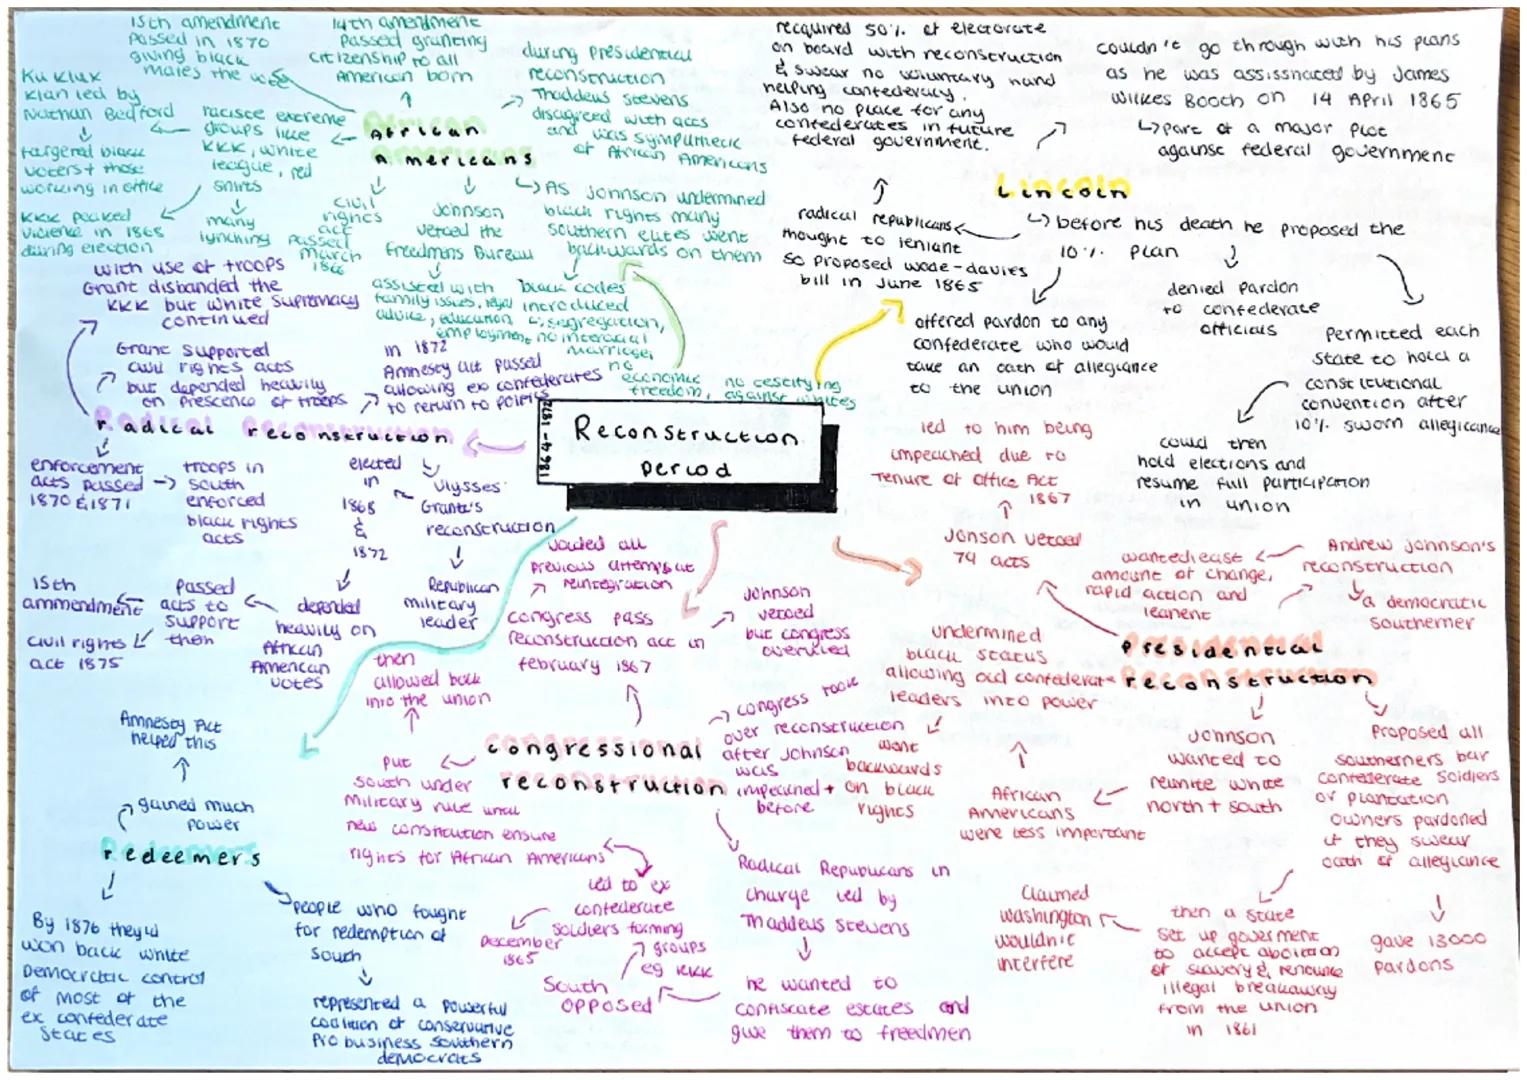 Reconstruction
period
1864-1877
African
Americans
15th amendment
passed in 1870
giving black
males the vote
14th amendment
passed granting
citizenship to all
American born
during presidential
reconstruction
Thaddeus Stevens
disagreed with acts
and was sympathetic
of African Americans
Ku Klux
Klan led by
Nathan Bedford
targered black
voters + those
working in office
racisce extreme
groups like
KKK, white
league, red
shirts
KKK peaked
violence in 1868
during election
many
lynching
civil
rights
act
passed
march
1866
Johnson
vetoed the
Freedmens Bureau
assisted with
family issues, legal
advice, education
employment
As Johnson undermined
black rights many
southern elites went
backwards on them
black codes
introduced
segregation,
no interracial
marriage,
no
economic
freedom,
no testifying
against whites
Lincoln
recquired 50% of electorate
on board with reconstruction
& swear no voluntary hand
helping confederacy.
Also no place for any
confederates in future
federal government.
couldn't go through with his plans
as he was assissnated by James
Wilkes Booth on 14 April 1865
part of a major plot
against federal government
radical republicans
thought to leniant
so proposed wade-davies
bill in June 1865
before his death he proposed the
10% plan
offered pardon to any
confederate who would
take an oath of allegiance
to the union
denied pardon
to confederate
officials
Permitted each
state to hold a
constitutional
convention after
10% sworn allegicance
could then
hold elections and
resume full participation
in union
with use of troops
Grant disbanded the
KKK but white supremacy
continued
Grant supported
civil rights acts
but depended heavily
on prescence of troops
in 1872
Amnesty act passed
allowing ex confederates
to return to politics
Radical reconstruction
enforcement
acts passed
1870 & 1871
troops in
south
enforced
black rights
acts
elected
in
1868
&
1872
Ulysses
Grant's
reconstruction
Republican
military
leader
depended
heavily on
African
American
votes
passed
acts to
support
them
15th
ammendment
civil rights
act 1875
Presidential
reconstruction
led to him being
impeached due to
Tenure of Office Act
1867
Jonson vetoed
74 acts
Andrew Johnson's
reconstruction
a democratic
southerner
wanted east
amount of change,
rapid action and
leanent
undermined
black status
allowing old confederate
leaders into power
went
backwards
on black
rights
Johnson
wanted to
reunite white
north + south
African
Americans
were less important
Proposed all
southerners bar
confederate soldiers
or plantation
owners pardoned
if they swear
oath of allegiance
gave 13000
pardons
then a state
set up goverment
to accept abolition
of slavery & renounce
illegal breakaway
from the union
in 1861
claimed
Washington
wouldn't
interfere
Congressional
reconstruction
voided all
previous attempts at
reintegration
congress pass
reconstruction act in
february 1867
Johnson
vetoed
but congress
overruled
congress took
over reconstruction
after Johnson
was
impeached +
before
then
allowed back
into the union
put
south under
military rule until
new constitution ensure
rights for African Americans
led to ex
confederate
soldiers forming
groups
eg KKK
December
1865
South
opposed
Radical Republicans in
charge led by
Thaddeus Stevens
he wanted to
confiscate estates and
give them to freedmen
Redeemers
gained much
power
Amnesty Act
helped this
By 1876 they'd
won back white
Democratic control
of most of the
ex confederate
states
people who fought
for redemption of
south
represented a powerful
coalition of conservative
pro business southern
democrats